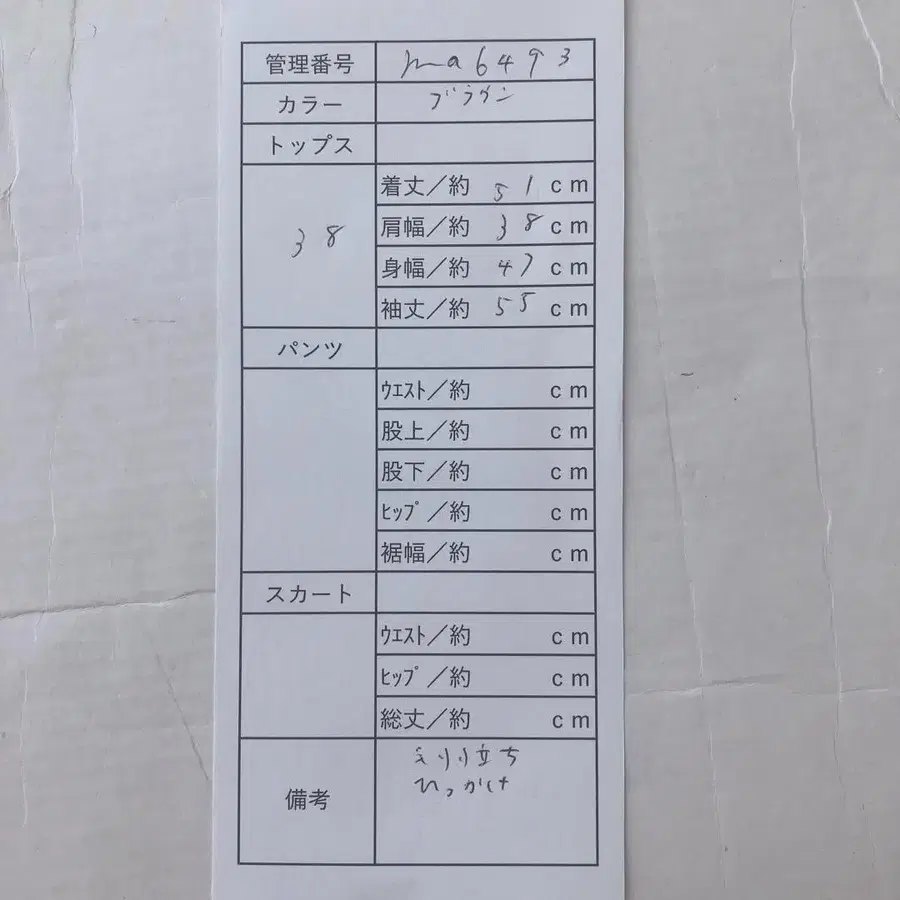 管理番号 ma6493
カラー ブラウン
トップス
38
着丈／約 51 cm
肩幅／約 38 cm
身幅／約 47 cm
袖丈／約 55 cm
パンツ
ｳｴｽﾄ／約 cm
股上／約 cm
股下／約 cm
ﾋｯﾌﾟ／約 cm
裾幅／約 cm
スカート
ｳｴｽﾄ／約 cm
ﾋｯﾌﾟ／約 cm
総丈／約 cm
備考
立ち
ひっかけ